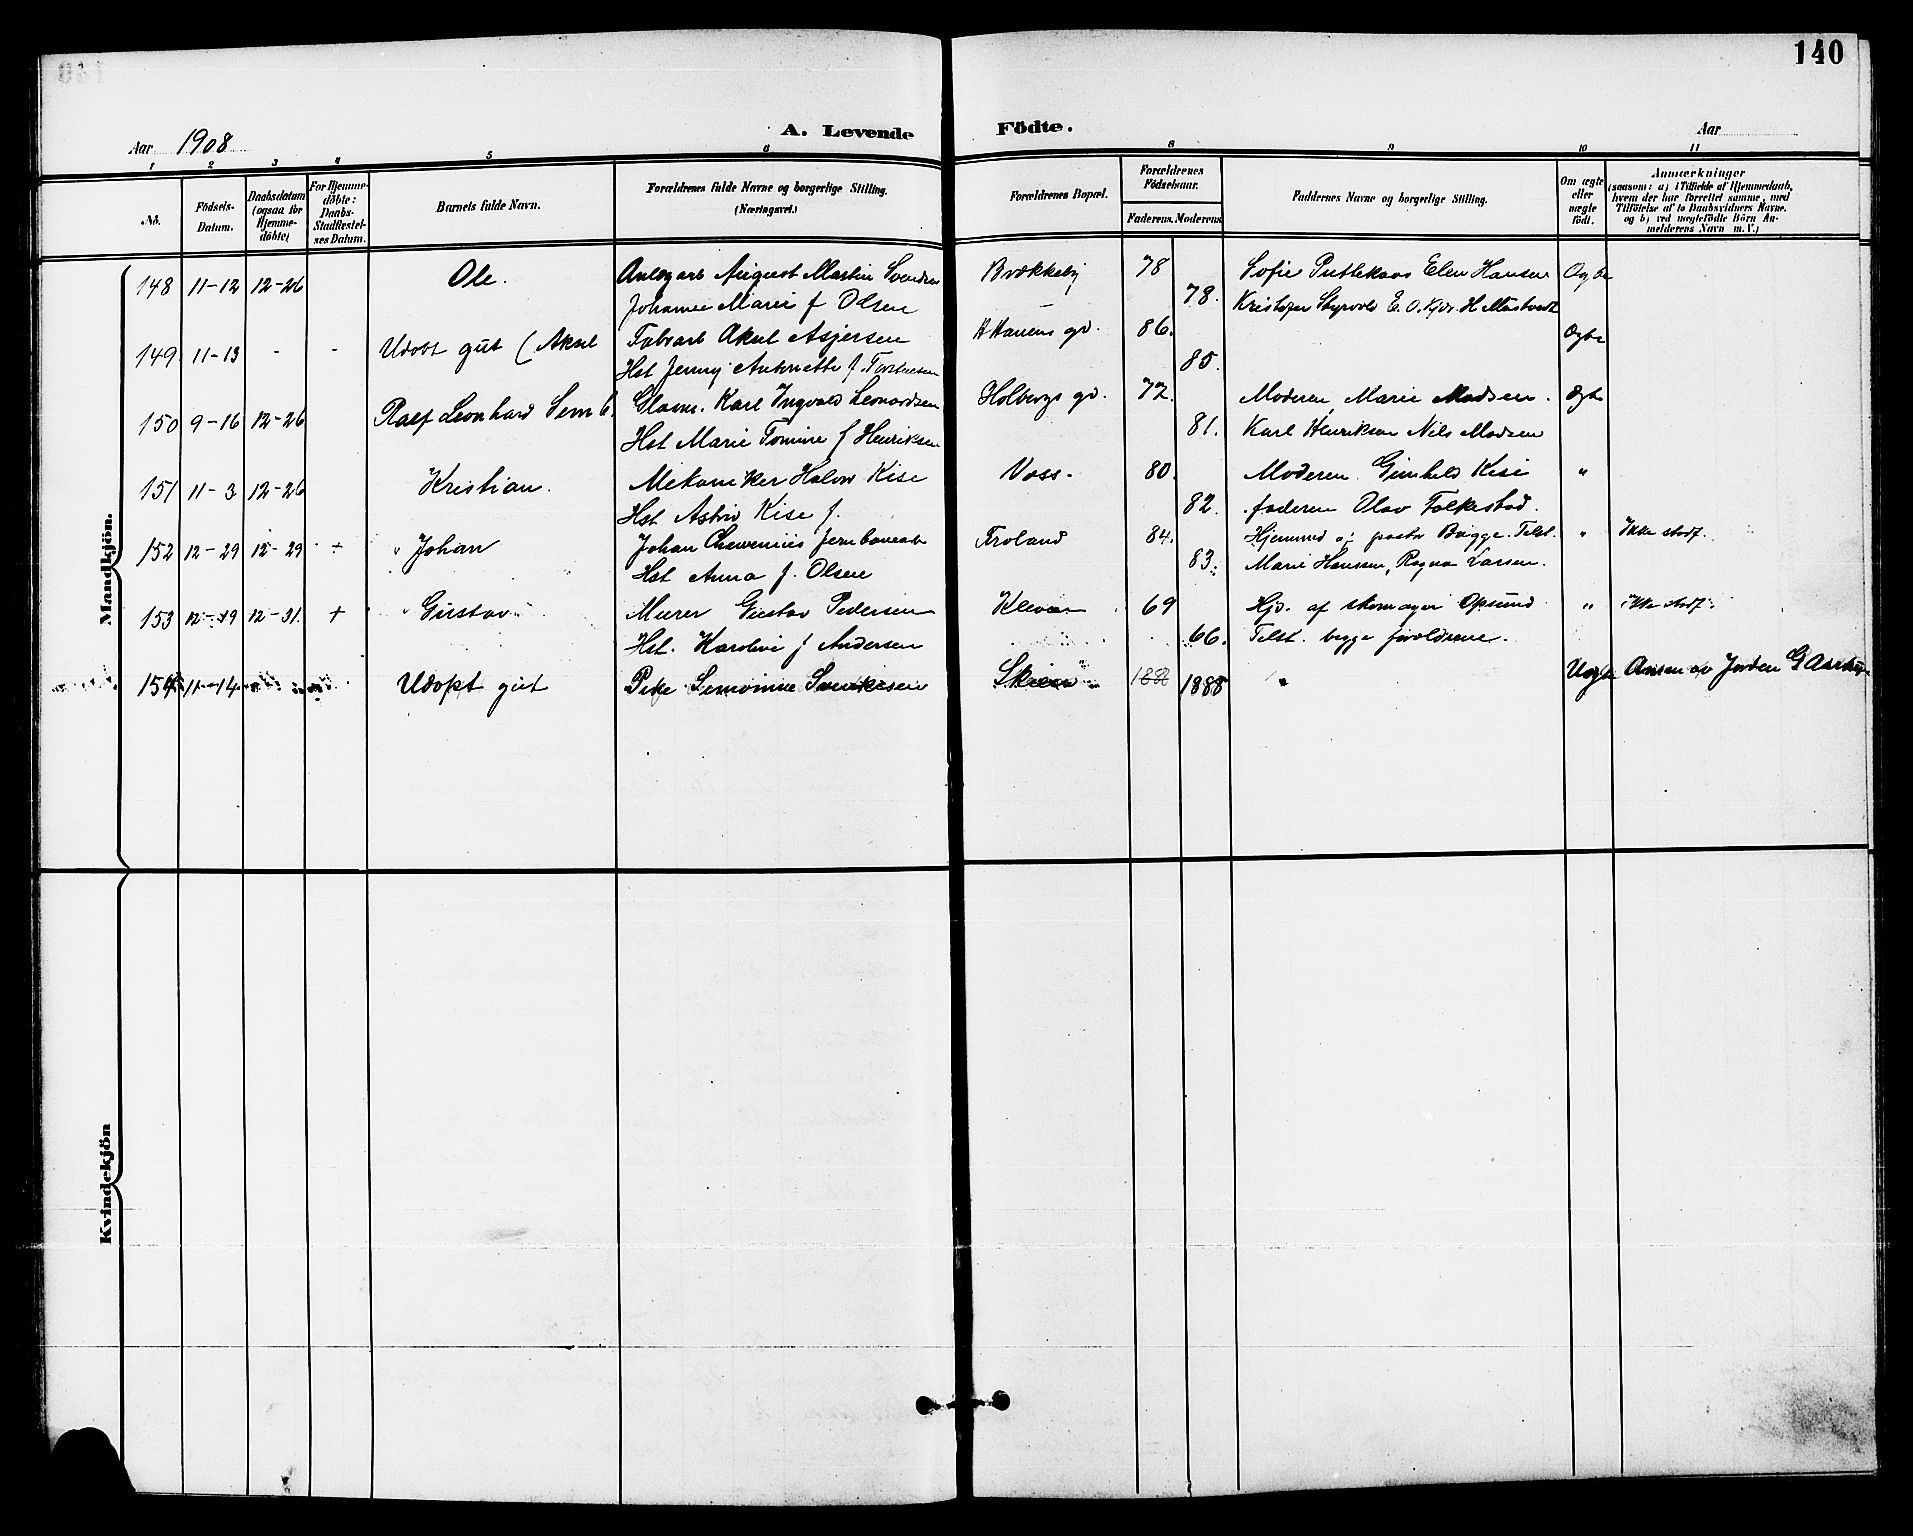 140
Aar 1908
A. Levende Födte.
Aar
1 2 3 4 5 6 8 9 10 11
No.
Födsels-Datum.
Daabsdatum (ogsaa for Hjemme-döbte)
For Hjemme-döbte: Daabs-Stadfæstel-ses Datum.
Barnets fulde Navn.
Forældrenes fulde Navne og borgerlige Stilling.
(Næringsvei.)
Forældrenes Bopæl.
Forældrenes Födselsaar.
Faderens. Moderens
Faddernes Navne og borgerlige Stilling.
Om ægte eller uægte födt.
Anmærkninger
(saasom: a) i Tilfælde af Hjemmedaab,
hvem der har forrettet samme, med
Tilföielse af to Daabsvidners Navne,
og b) ved uægtefödte Börn An-
melderens Navn m. V.)
Mandkjön.
148 11-12 12-26 Ole. August Martin Svendsen Brækkeby 78 Sofie Elen Hansen Ægte
Johanne Marie f Olsen 78. Kristofer
149 11-13 - - Udøbt gut (Aksel Fabrarb Aksel Asjersen gd. 86. Ægte
Hst Jenny Antonette f. Torstensen 85.
150 9-16 12-26 Ralf Leonhard Sem Glasm. Karl Ingvald Leonardsen Holbergs gd. 72. Moderen, Marie Madsen. Ægte
Hst Marie Tomine f Henriksen 81. Karl Henriksen Nils Madsen
151 11-3 12-26 Kristian. Mekaniker Halvor Kise Voss. 80. Moderen Gunhild Kise "
Hst Astrid Kise f. 82. faderen Olav Folkestad.
152 12-29 12-29 + Johan Johan Froland 84. Hjemmed af pastor Bugge. Tilst. " Ikke stadf.
Hst Anna f. Olsen 83. Marie Hansen, Ragna Larsen.
153 12-19 12-31. + Gustav Murer Gustav Pedersen Kleven 69 Hjd. af skomager Opsund " Ikke stadf.
Hst. Karoline f Andersen 66. Tilst. begge forældrene.
154 11-14 Udøpt gut Pike Skien 1888 1888 " Uægte Anm av Jordm
Kvindekjön